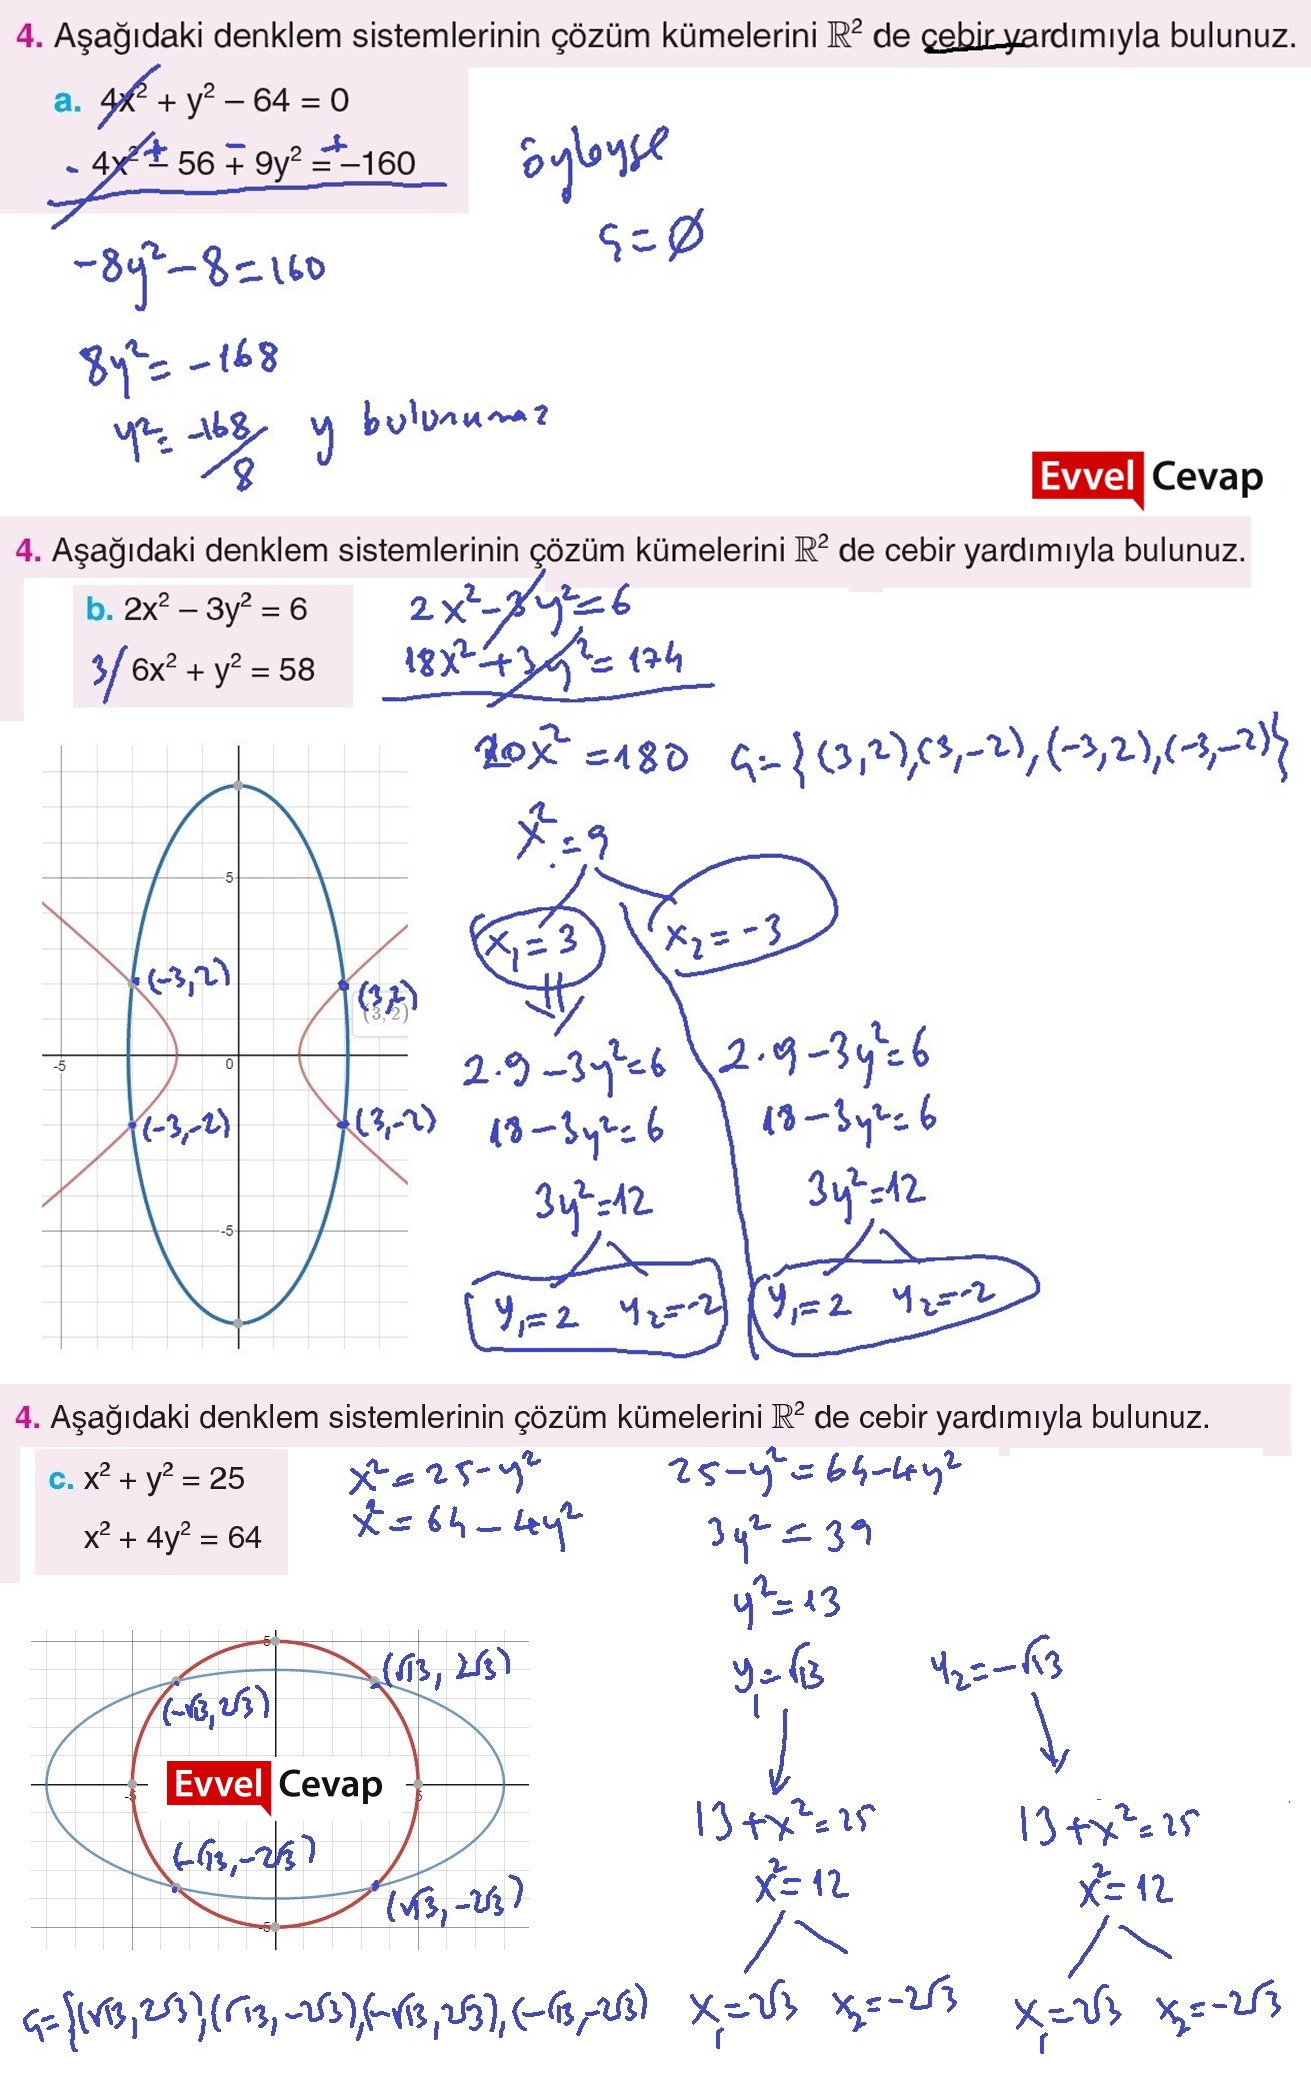 4. Aşağıdaki denklem sistemlerinin çözüm kümelerini ℝ² de cebir yardımıyla bulunuz.
a. 4x² + y² – 64 = 0
- 4x² – 56 + 9y² = –160
+ – +
öyleyse
Ç=∅
-8y²-8=160
8y²=-168
y²=-168/8 y bulunamaz
Evvel Cevap
4. Aşağıdaki denklem sistemlerinin çözüm kümelerini ℝ² de cebir yardımıyla bulunuz.
b. 2x² – 3y² = 6
3/ 6x² + y² = 58
2x²-3y²=6
18x²+3y²=174
20x²=180 Ç={(3,2),(3,-2),(-3,2),(-3,-2)}
x²=9
x₁=3 x₂=-3
2.9-3y²=6 2.9-3y²=6
18-3y²=6 18-3y²=6
3y²=12 3y²=12
y₁=2 y₂=-2 y₁=2 y₂=-2
5
(-3,2) (3,2)
(3, 2)
-5 0
(-3,-2) (3,-2)
-5
4. Aşağıdaki denklem sistemlerinin çözüm kümelerini ℝ² de cebir yardımıyla bulunuz.
c. x² + y² = 25
x² + 4y² = 64
x²=25-y²
x²=64-4y²
25-y²=64-4y²
3y²=39
y²=13
y₁=√13 y₂=-√13
13+x²=25 13+x²=25
x²=12 x²=12
x₁=2√3 x₂=-2√3 x₁=2√3 x₂=-2√3
5
(√13, 2√3)
(-√13, 2√3)
Evvel Cevap
-5 5
(-√13,-2√3)
(√13,-2√3)
-5
Ç={(√13,2√3)(√13,-2√3),(-√13,2√3),(-√13,-2√3)